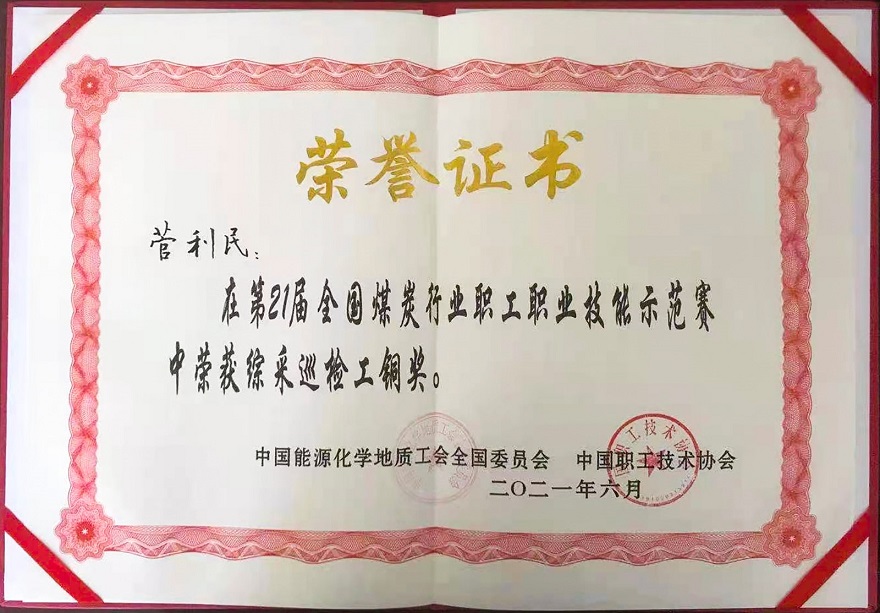 荣誉证书
菅利民：
在第21届全国煤炭行业职工职业技能示范赛
中荣获综采巡检工铜奖。
中国能源化学地质工会全国委员会 中国职工技术协会
二〇二一年六月